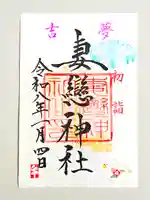 夢
初詣
妻戀神社
吉
令和八年一月四日